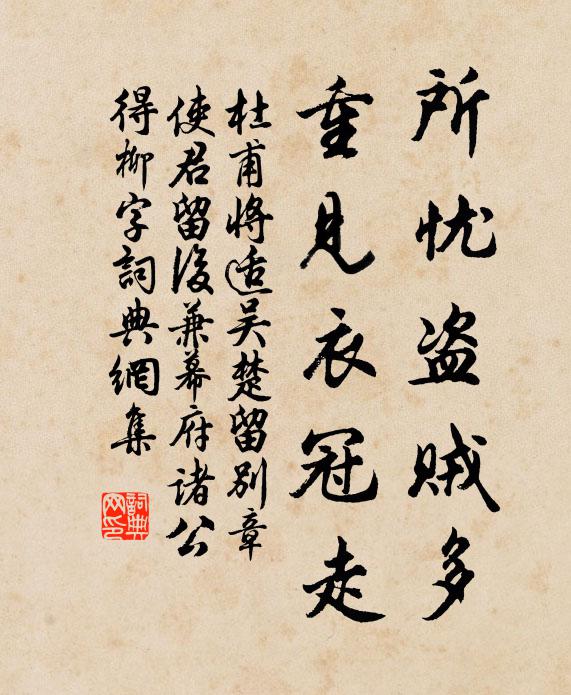 所忧盗贼多
重见衣冠走
杜甫将适吴楚留别章
使君留后兼幕府诸公
得柳字詞典網集
詞典网印